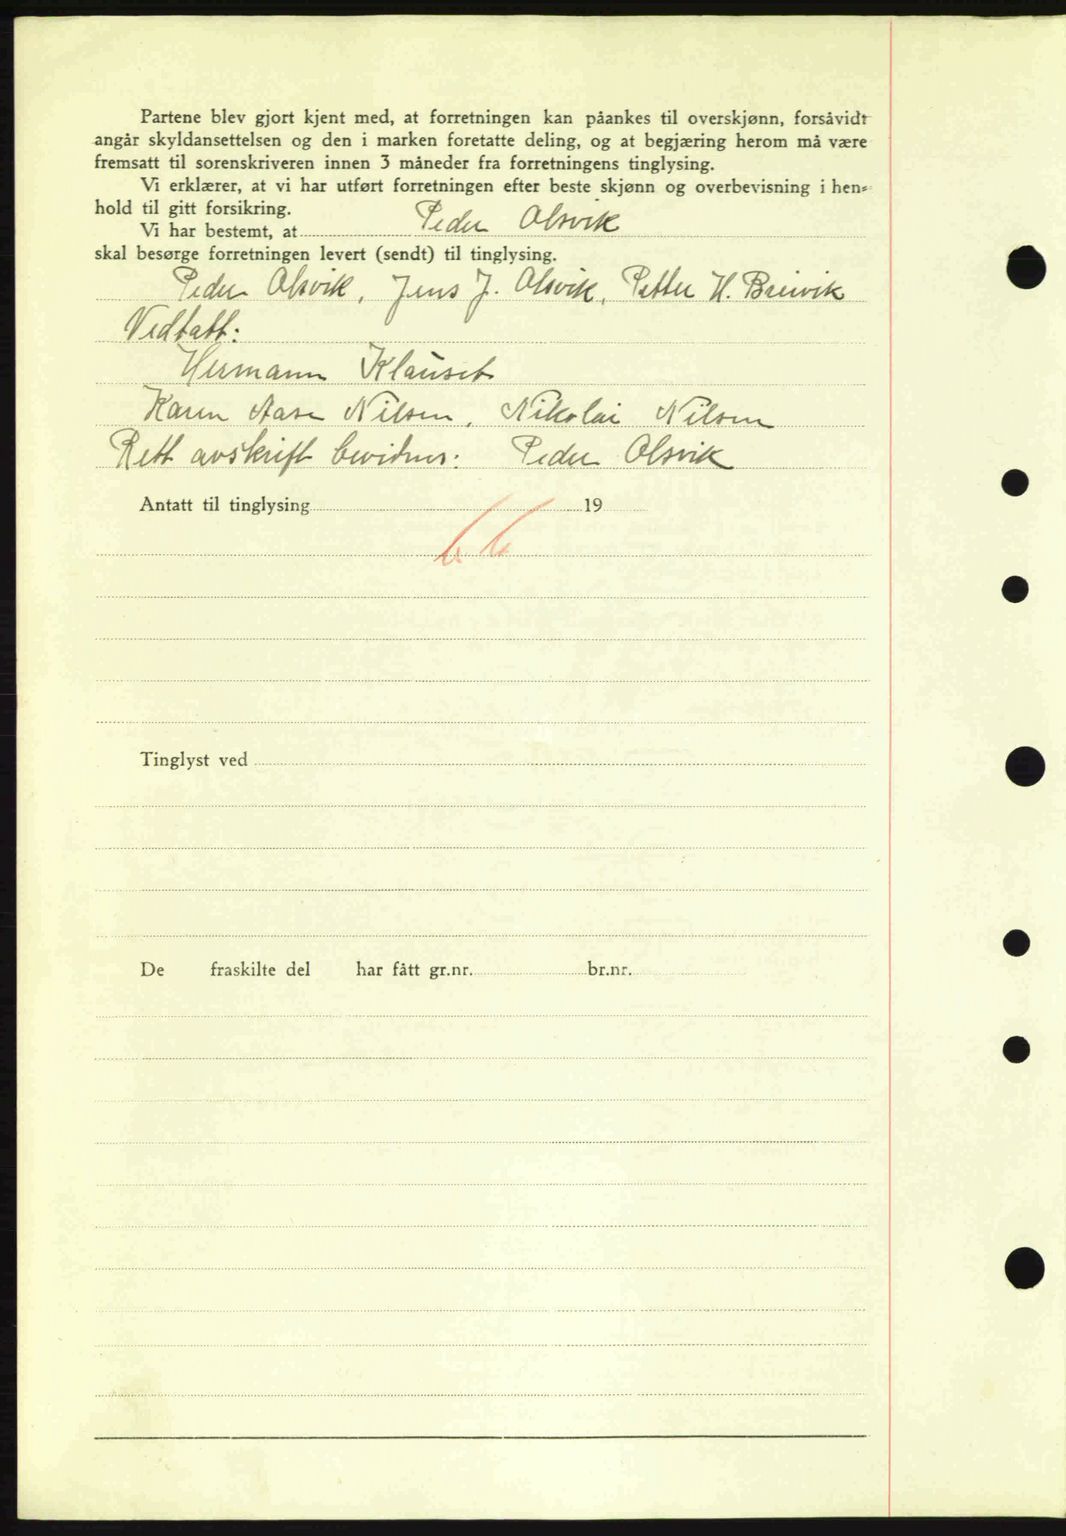 Partene blev gjort kjent med, at forretningen kan påankes til overskjønn, forsåvidt
angår skyldansettelsen og den i marken foretatte deling, og at begjæring herom må være
fremsatt til sorenskriveren innen 3 måneder fra forretningens tinglysing.
Vi erklærer, at vi har utført forretningen efter beste skjønn og overbevisning i hen=
hold til gitt forsikring.
Vi har bestemt, at Peder Alsvik
skal besørge forretningen levert (sendt) til tinglysing.
Peder Alsvik, Jens J. Alsvik, Petter H. Breivik
Vedtatt:
Hermann Klauset
Karen Aase Nilsen, Nikolai Nilsen
Rett avskrift bevidnes: Peder Alsvik
Antatt til tinglysing 19
Tinglyst ved
De fraskilte del har fått gr.nr. br.nr.